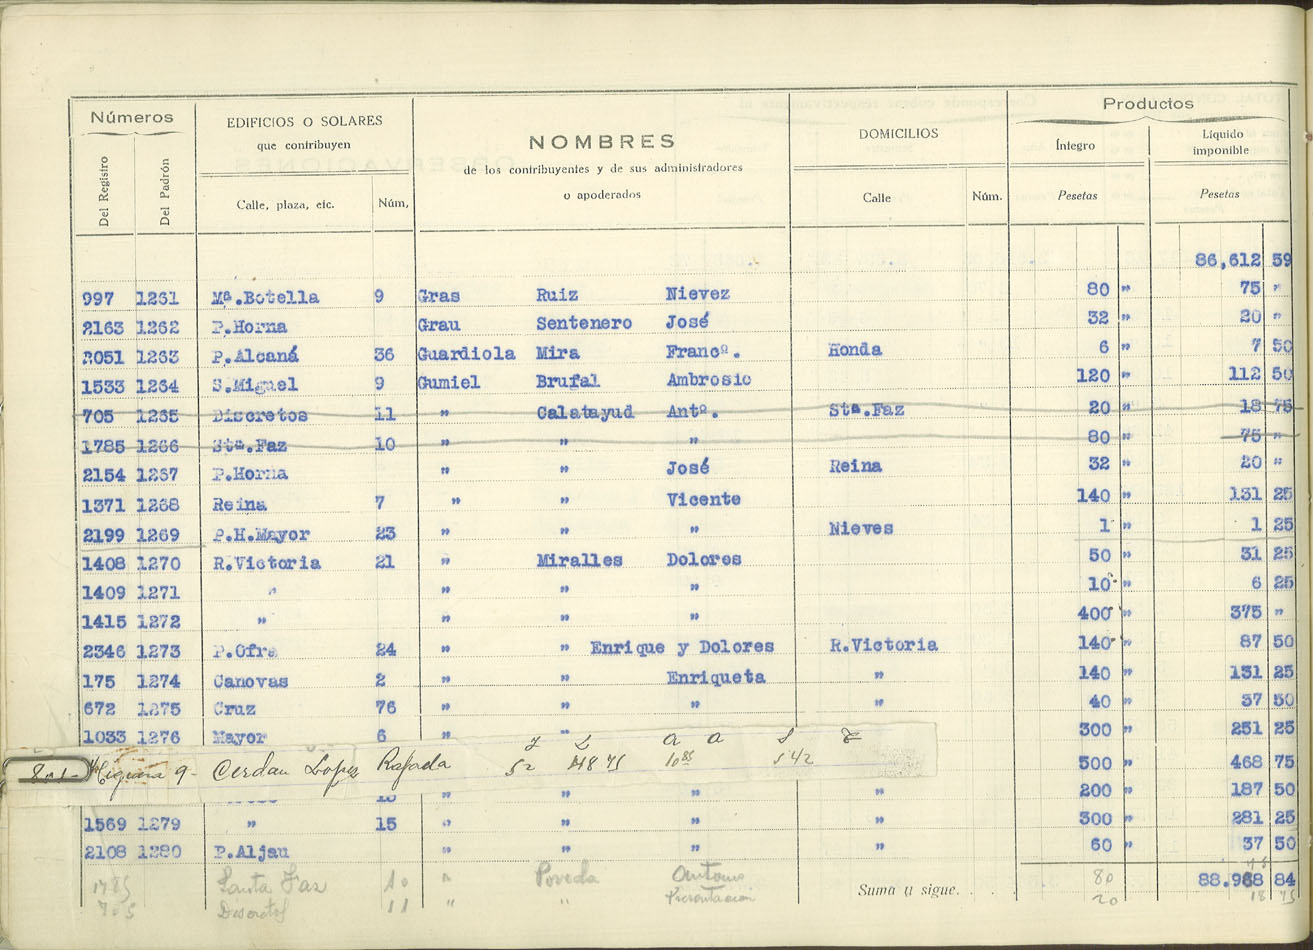 Números
EDIFICIOS O SOLARES
que contribuyen
NOMBRES
de los contribuyentes y de sus administradores
o apoderados
DOMICILIOS
Productos
Íntegro
Líquido
imponible
Del Registro Del Padrón Calle, plaza, etc. Núm, Calle Núm. Pesetas Pesetas
86,612 59
997 1261 Mª.Botella 9 Gras Ruiz Nievez 80 " 75 "
2163 1262 P.Horna Grau Sentenero José 32 " 20 "
2051 1263 P.Alcaná 36 Guardiola Mira Francº. Honda 6 " 7 50
1533 1264 S.Miguel 9 Gumiel Brufal Ambrosio 120 " 112 50
705 1265 Discretos 11 " Calatayud Antº. Stª.Faz 20 " 18 75
1785 1266 Stª.Faz 10 " " " 80 " 75 "
2154 1267 P.Horna " " José Reina 32 " 20 "
1371 1268 Reina 7 " " Vicente 140 " 131 25
2199 1269 P.H.Mayor 23 " " " Nieves 1 " 1 25
1408 1270 R.Victoria 21 " Miralles Dolores 50 " 31 25
1409 1271 " " " " 10 " 6 25
1415 1272 " " " " 400 " 375 "
2346 1273 P.Ofra 24 " " Enrique y Dolores R.Victoria 140 " 87 50
175 1274 Canovas 2 " " Enriqueta " 140 " 131 25
672 1275 Cruz 76 " " " " 40 " 37 50
1033 1276 Mayor 6 " 300 " 251 25
9 - Cerdan Lopez Rafaela 52 1085 542
500 " 468 75
" " " " 200 " 187 50
1569 1279 " 15 " " " " 300 " 281 25
2108 1280 P.Aljau " " " " 60 " 37 50
1785 Santa Faz 10 " Poveda Antonio 80 75
Suma y sigue. . . 88.968 84
705 Discretos 11 " " Presentacion 20 18 75